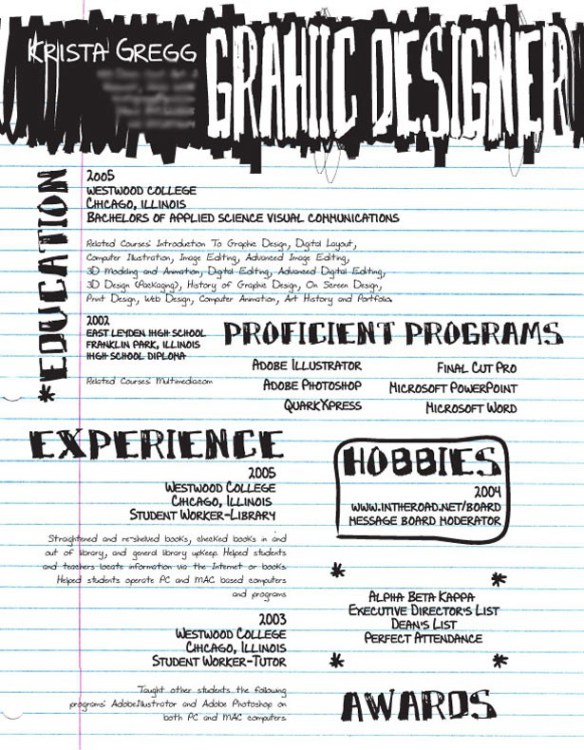 KRISTA GREGG
GRAHIIC DESIGNER
*EDUCATION
2005
WESTWOOD COLLEGE
CHICAGO, ILLINOIS
BACHELORS OF APPLIED SCIENCE VISUAL COMMUNICATIONS
Related Courses: Introduction To Graphic Design, Digital Layout,
Computer Illustration, Image Editing, Advanced Image Editing,
3D Modeling and Animation, Digital Editing, Advanced Digital Editing,
3D Design (Packaging), History of Graphic Design, On Screen Design,
Print Design, Web Design, Computer Animation, Art History and Portfolio.
2002
EAST LEYDEN HIGH SCHOOL
FRANKLIN PARK, ILLINOIS
HIGH SCHOOL DIPLOMA
Related Courses: Multimedia.com
PROFICIENT PROGRAMS
ADOBE ILLUSTRATOR
ADOBE PHOTOSHOP
QUARKXPRESS
FINAL CUT PRO
MICROSOFT POWERPOINT
MICROSOFT WORD
EXPERIENCE
2005
WESTWOOD COLLEGE
CHICAGO, ILLINOIS
STUDENT WORKER-LIBRARY
Straightened and re-shelved books, checked books in and
out of library, and general library upkeep. Helped students
and teachers locate information via the Internet or books.
Helped students operate PC and MAC based computers
and programs
2003
WESTWOOD COLLEGE
CHICAGO, ILLINOIS
STUDENT WORKER-TUTOR
Taught other students the following
programs: AdobeIllustrator and Adobe Photoshop on
both PC and MAC computers.
HOBBIES
2004
WWW.INTHEROAD.NET/BOARD
MESSAGE BOARD MODERATOR
ALPHA BETA KAPPA
EXECUTIVE DIRECTOR'S LIST
DEAN'S LIST
PERFECT ATTENDANCE
AWARDS